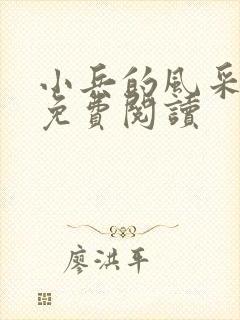 小兵的風采
免費閱讀
廖洪平